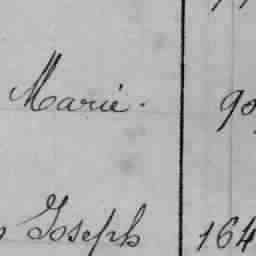 Marie. 90
Joseph 164